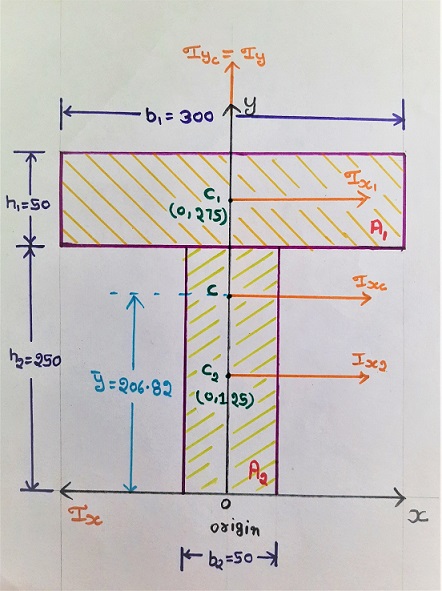 I_yc = I_y
y
b₁ = 300
h₁=50
C₁
(0,275)
I_x₁
A₁
C
I_xc
h₂=250
ȳ=206.82
C₂
(0,125)
I_x₂
A₂
I_x
O
x
origin
b₂=50